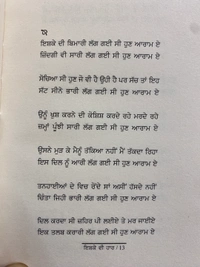 ਇਸ਼ਕੇ ਦੀ ਬਿਮਾਰੀ ਲੱਗ ਗਈ ਸੀ ਹੁਣ ਆਰਾਮ ਏ
ਜ਼ਿੰਦਗੀ ਵੀ ਸਾਰੀ ਲੱਗ ਗਈ ਸੀ ਹੁਣ ਆਰਾਮ ਏ
ਸੋਚਿਆ ਸੀ ਹੁਣ ਜੋ ਵੀ ਹੈ ਉਹੀ ਹੈ ਪਰ ਸੱਚ ਤਾਂ ਇਹ
ਸੱਟ ਸੀਨੇ ਭਾਰੀ ਲੱਗ ਗਈ ਸੀ ਹੁਣ ਆਰਾਮ ਏ
ਉਨੂੰ ਖੁਸ਼ ਕਰਨ ਦੀ ਕੋਸ਼ਿਸ਼ ਕਰਦੇ ਰਹੇ ਮਰਦੇ ਰਹੇ
ਜਮ੍ਹਾਂ ਪੂੰਜੀ ਸਾਰੀ ਲੱਗ ਗਈ ਸੀ ਹੁਣ ਆਰਾਮ ਏ
ਉਸਨੇ ਮੁੜ ਕੇ ਮੈਨੂੰ ਤੱਕਿਆ ਨਹੀਂ ਮੈਂ ਤੱਕਦਾ ਰਿਹਾ
ਇਸ ਦਿਲ ਨੂੰ ਆਰੀ ਲੱਗ ਗਈ ਸੀ ਹੁਣ ਆਰਾਮ ਏ
ਤਨਹਾਈਆਂ ਦੇ ਵਿਚ ਰੋਂਦੇ ਸਾਂ ਅਸੀਂ ਹੱਸਦੇ ਨਹੀਂ
ਚਿੰਤਾ ਜਿਹੀ ਭਾਰੀ ਲੱਗ ਗਈ ਸੀ ਹੁਣ ਆਰਾਮ ਏ
ਦਿਲ ਕਰਦਾ ਸੀ ਜ਼ਹਿਰ ਪੀ ਲਈਏ ਤੇ ਮਰ ਜਾਈਏ
ਇਕ ਤਲਬ ਕਰਾਰੀ ਲੱਗ ਗਈ ਸੀ ਹੁਣ ਆਰਾਮ ਏ
ਇਸ਼ਕੇ ਦੀ ਹਾਰ / 13